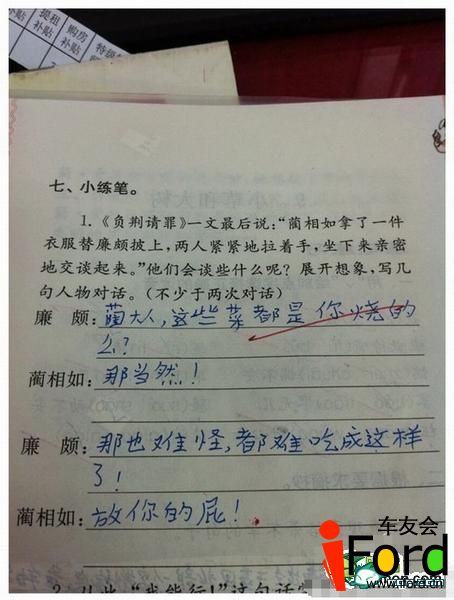 提租 购房 特级
补贴 补贴
七、小练笔。
1.《负荆请罪》一文最后说:“蔺相如拿了一件
衣服替廉颇披上,两人紧紧地拉着手,坐下来亲密
地交谈起来。”他们会谈些什么呢?展开想象,写几
句人物对话。(不少于两次对话)
廉 颇:蔺大人,这些菜都是你烧的
么?
蔺相如:那当然!
廉 颇:那也难怪,都难吃成这样
了!
蔺相如:放你的屁!
车友会
iFord
www.iford.cn